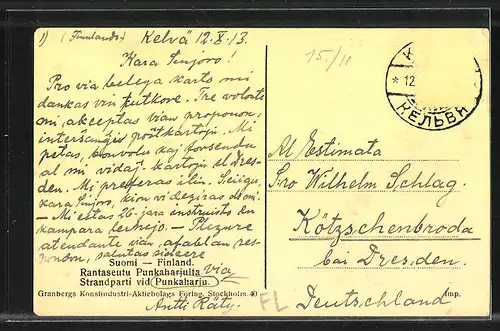 1) (Finnlando.) Kelvä 12.X.13.
Kara Sinjoro!
Pro via belega karto mi
dankas vin tutkore. Tre volonte
mi akceptas vian proponon;
interŝanĝi poŝtkartojn. Mi
petas, bonvolu kaj forsendu
al mi vidaj- kartojn el Dres-
den. Mi preferas ilin. Sciigu,
kara Sinjoro, kion vi deziras de mi.
— Mi estas 26-jara instruisto en
kampara lernejo. — Plezure
atendante vian afablan res-
pondon, salutas sincere
via
Antti Räty.
Suomi — Finland.
Rantaseutu Punkaharjulta
Strandparti vid Punkaharju.
Granbergs Konstindustri-Aktiebolags Förlag, Stockholm.
15./11
* 12
КЕЛЬВЯ
Al Estimata
S-ro Wilhelm Schlag.
Kötzschenbroda
bei Dresden.
Deutschland
Imp.
FL